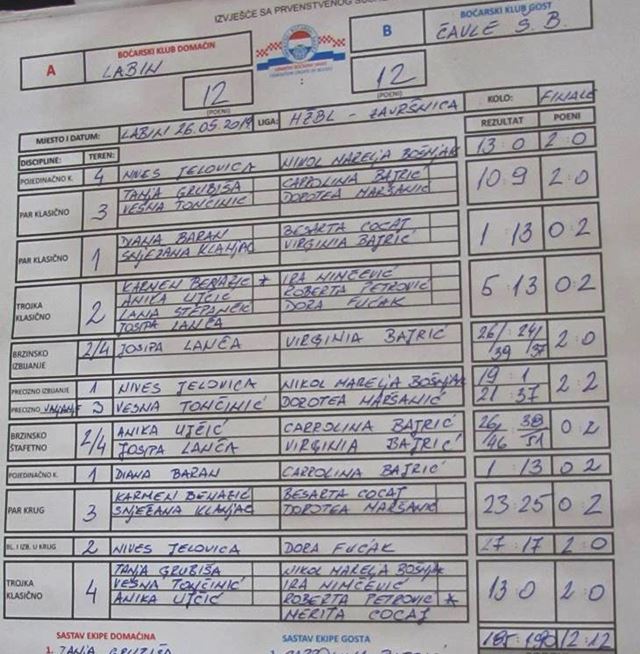 IZVJEŠĆE SA PRVENSTVENOG
A BOĆARSKI KLUB DOMAĆIN
LABIN
12
(POENI)
B BOĆARSKI KLUB GOST
ČAVLE Š.B.
12
(POENI)
MJESTO I DATUM: LABIN 26.05.2019 LIGA: HŽBL - ZAVRŠNICA KOLO: FINALE
DISCIPLINE: TEREN: REZULTAT POENI
POJEDINAČNO K. 4 NIVES JELOVICA NIKOL MARELJA BOŠNJAK 13:0 2:0
PAR KLASIČNO 3 TANJA GRUBIŠA CARROLINA BAJRIĆ 10:9 2:0
VESNA TONČINIĆ DOROTEA MARŠANIĆ
PAR KLASIČNO 1 DIANA BARAN BESARTA COCAJ 1:13 0:2
SNJEŽANA KLANJAC VIRGINIA BAJRIĆ
TROJKA KLASIČNO 2 KARMEN BENAZIĆ * IRA NIMČEVIĆ 5:13 0:2
ANIKA UJČIĆ ROBERTA PETROVIĆ
LANA STEPANČIĆ DORA FUĆAK
JOSIPA LANČA
BRZINSKO IZBIJANJE 2/4 JOSIPA LANČA VIRGINIA BAJRIĆ 26/39 : 24/37 2:0
PRECIZNO IZBIJANJE 1 NIVES JELOVICA NIKOL MARELJA BOŠNJAK 19:1 2:2
PRECIZNO VALJANJE 3 VESNA TONČINIĆ DOROTEA MARŠANIĆ 21:37
BRZINSKO ŠTAFETNO 2/4 ANIKA UJČIĆ CARROLINA BAJRIĆ 26/46 : 38/51 0:2
JOSIPA LANČA VIRGINIA BAJRIĆ
POJEDINAČNO K. 1 DIANA BARAN CARROLINA BAJRIĆ 1:13 0:2
PAR KRUG 3 KARMEN BENAZIĆ BESARTA COCAJ 23:25 0:2
SNJEŽANA KLANJAC DOROTEA MARŠANIĆ
BL. I IZB. U KRUG 2 NIVES JELOVICA DORA FUĆAK 27:17 2:0
TROJKA KLASIČNO 4 TANJA GRUBIŠA NIKOL MARELJA BOŠNJAK 13:0 2:0
VESNA TONČINIĆ IRA NIMČEVIĆ
ANIKA UJČIĆ ROBERTA PETROVIĆ *
NERITA COCAJ
185:190 12:12
SASTAV EKIPE DOMAĆINA SASTAV EKIPE GOSTA
1. TANJA GRUBIŠA